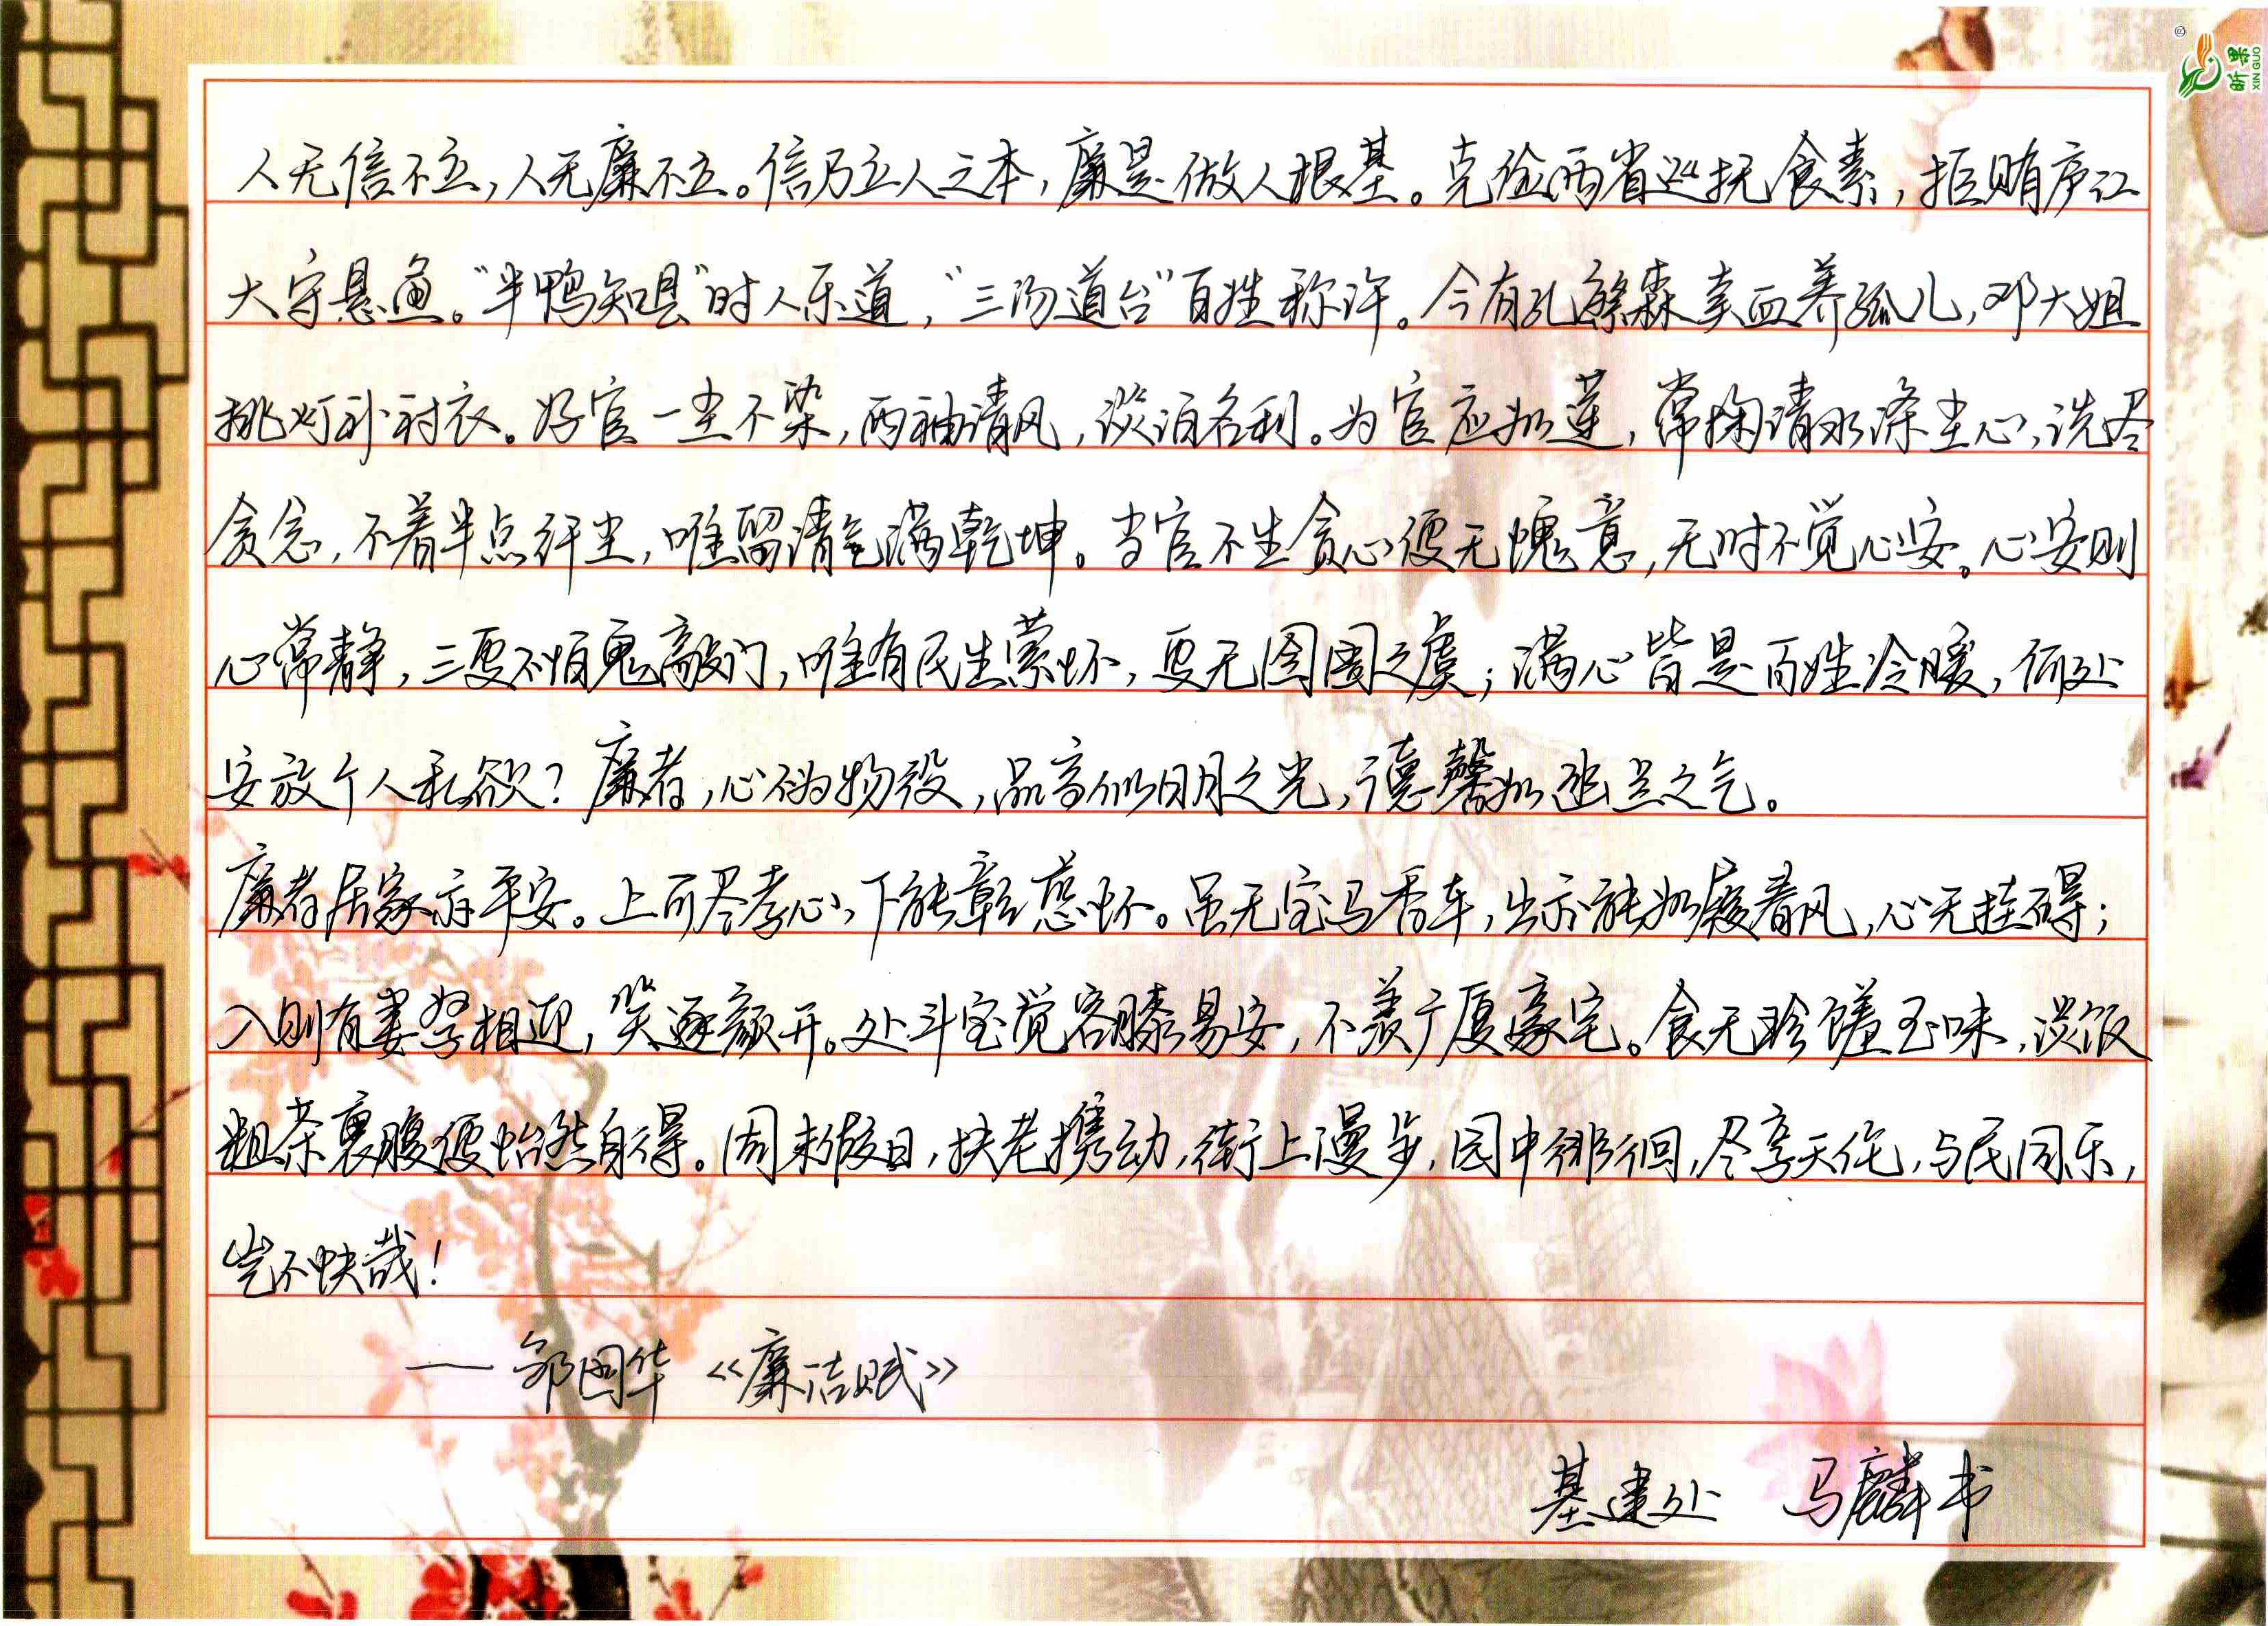 人无信不立，人无廉不立。信乃立人之本，廉是做人根基。克俭两省巡抚食素，拒贿庐江
大守悬鱼。“半鸭知县”时人乐道，“三汤道台”百姓称许。今有孔繁森卖血养孤儿，邓大姐
挑灯补衬衣。好官一尘不染，两袖清风，淡泊名利。为官应如莲，常掬清水涤尘心，洗尽
贪念，不着半点纤尘，唯留清气满乾坤。当官不生贪心便无愧意，无时不觉心安。心安则
心常静，三更不怕鬼敲门，唯有民生萦怀，更无囹圄之虞；满心皆是百姓冷暖，何处
安放个人私欲？廉者，心不为物役，品高似明月之光，德馨如幽兰之气。
廉者居家亦平安。上可尽孝心，下能彰慈怀。虽无宝马香车，出亦能如履春风，心无挂碍；
入则有妻孥相迎，笑逐颜开。处斗室觉容膝易安，不羡广厦豪宅。食无珍馐玉味，淡饭
粗茶裹腹便怡然自得。周末假日，扶老携幼，街上漫步，园中徘徊，尽享天伦，与民同乐，
岂不快哉！
——邹国华《廉洁赋》
基建处 马麟书
昕果
XIN GUO